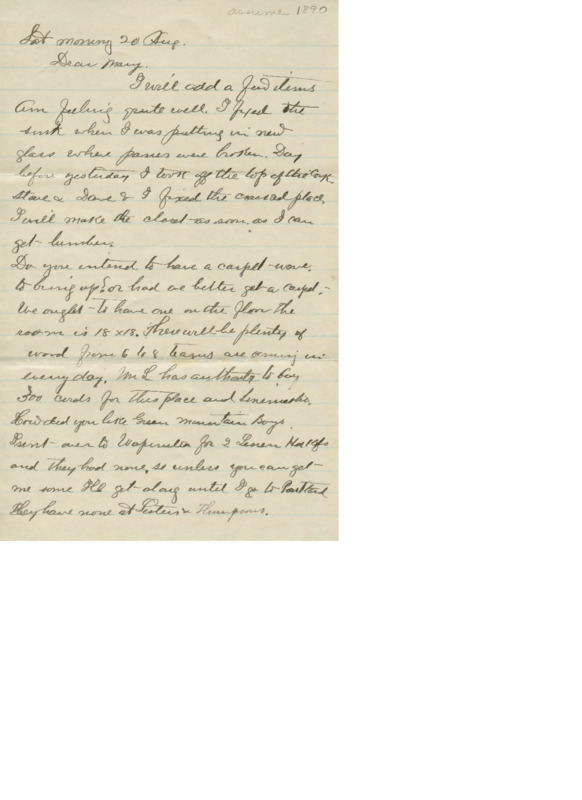 assume 1890
Sat morning 20 Aug.
Dear Mary.
I will add a few items
Am feeling quite well. I fixed the
sink when I was putting in new
glass where panes were broken. Day
before yesterday I took off the top of the Cook
stove & Dave & I fixed the cracked place.
I will make the closet as soon as I can
get lumber.
Do you intend to have a carpet wove.
to bring up? or had we better get a carpet.-
We ought to have one on the floor the
room is 18 x 18. There will be plenty of
wood from 6 to 8 teams are coming in
every day. Mr L has authority to buy
300 cords for this place and
How did you like Green Mountain Boys.
I sent over to Wapinitia for 2 Linen Hdkfs
and they had none, so unless you can get
me some I'll get along until I go to Portland
They have none at &